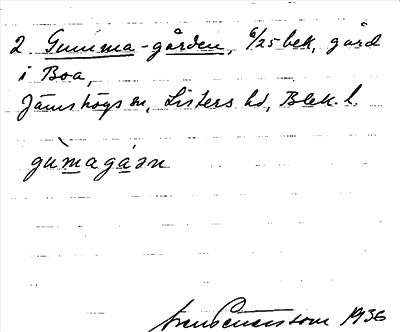 2. Gumma-gården, 6/25 bek, gård
i Boa,
Jämshögs sn, Listers hd, Blek. l.
gùmagáɘn
1936